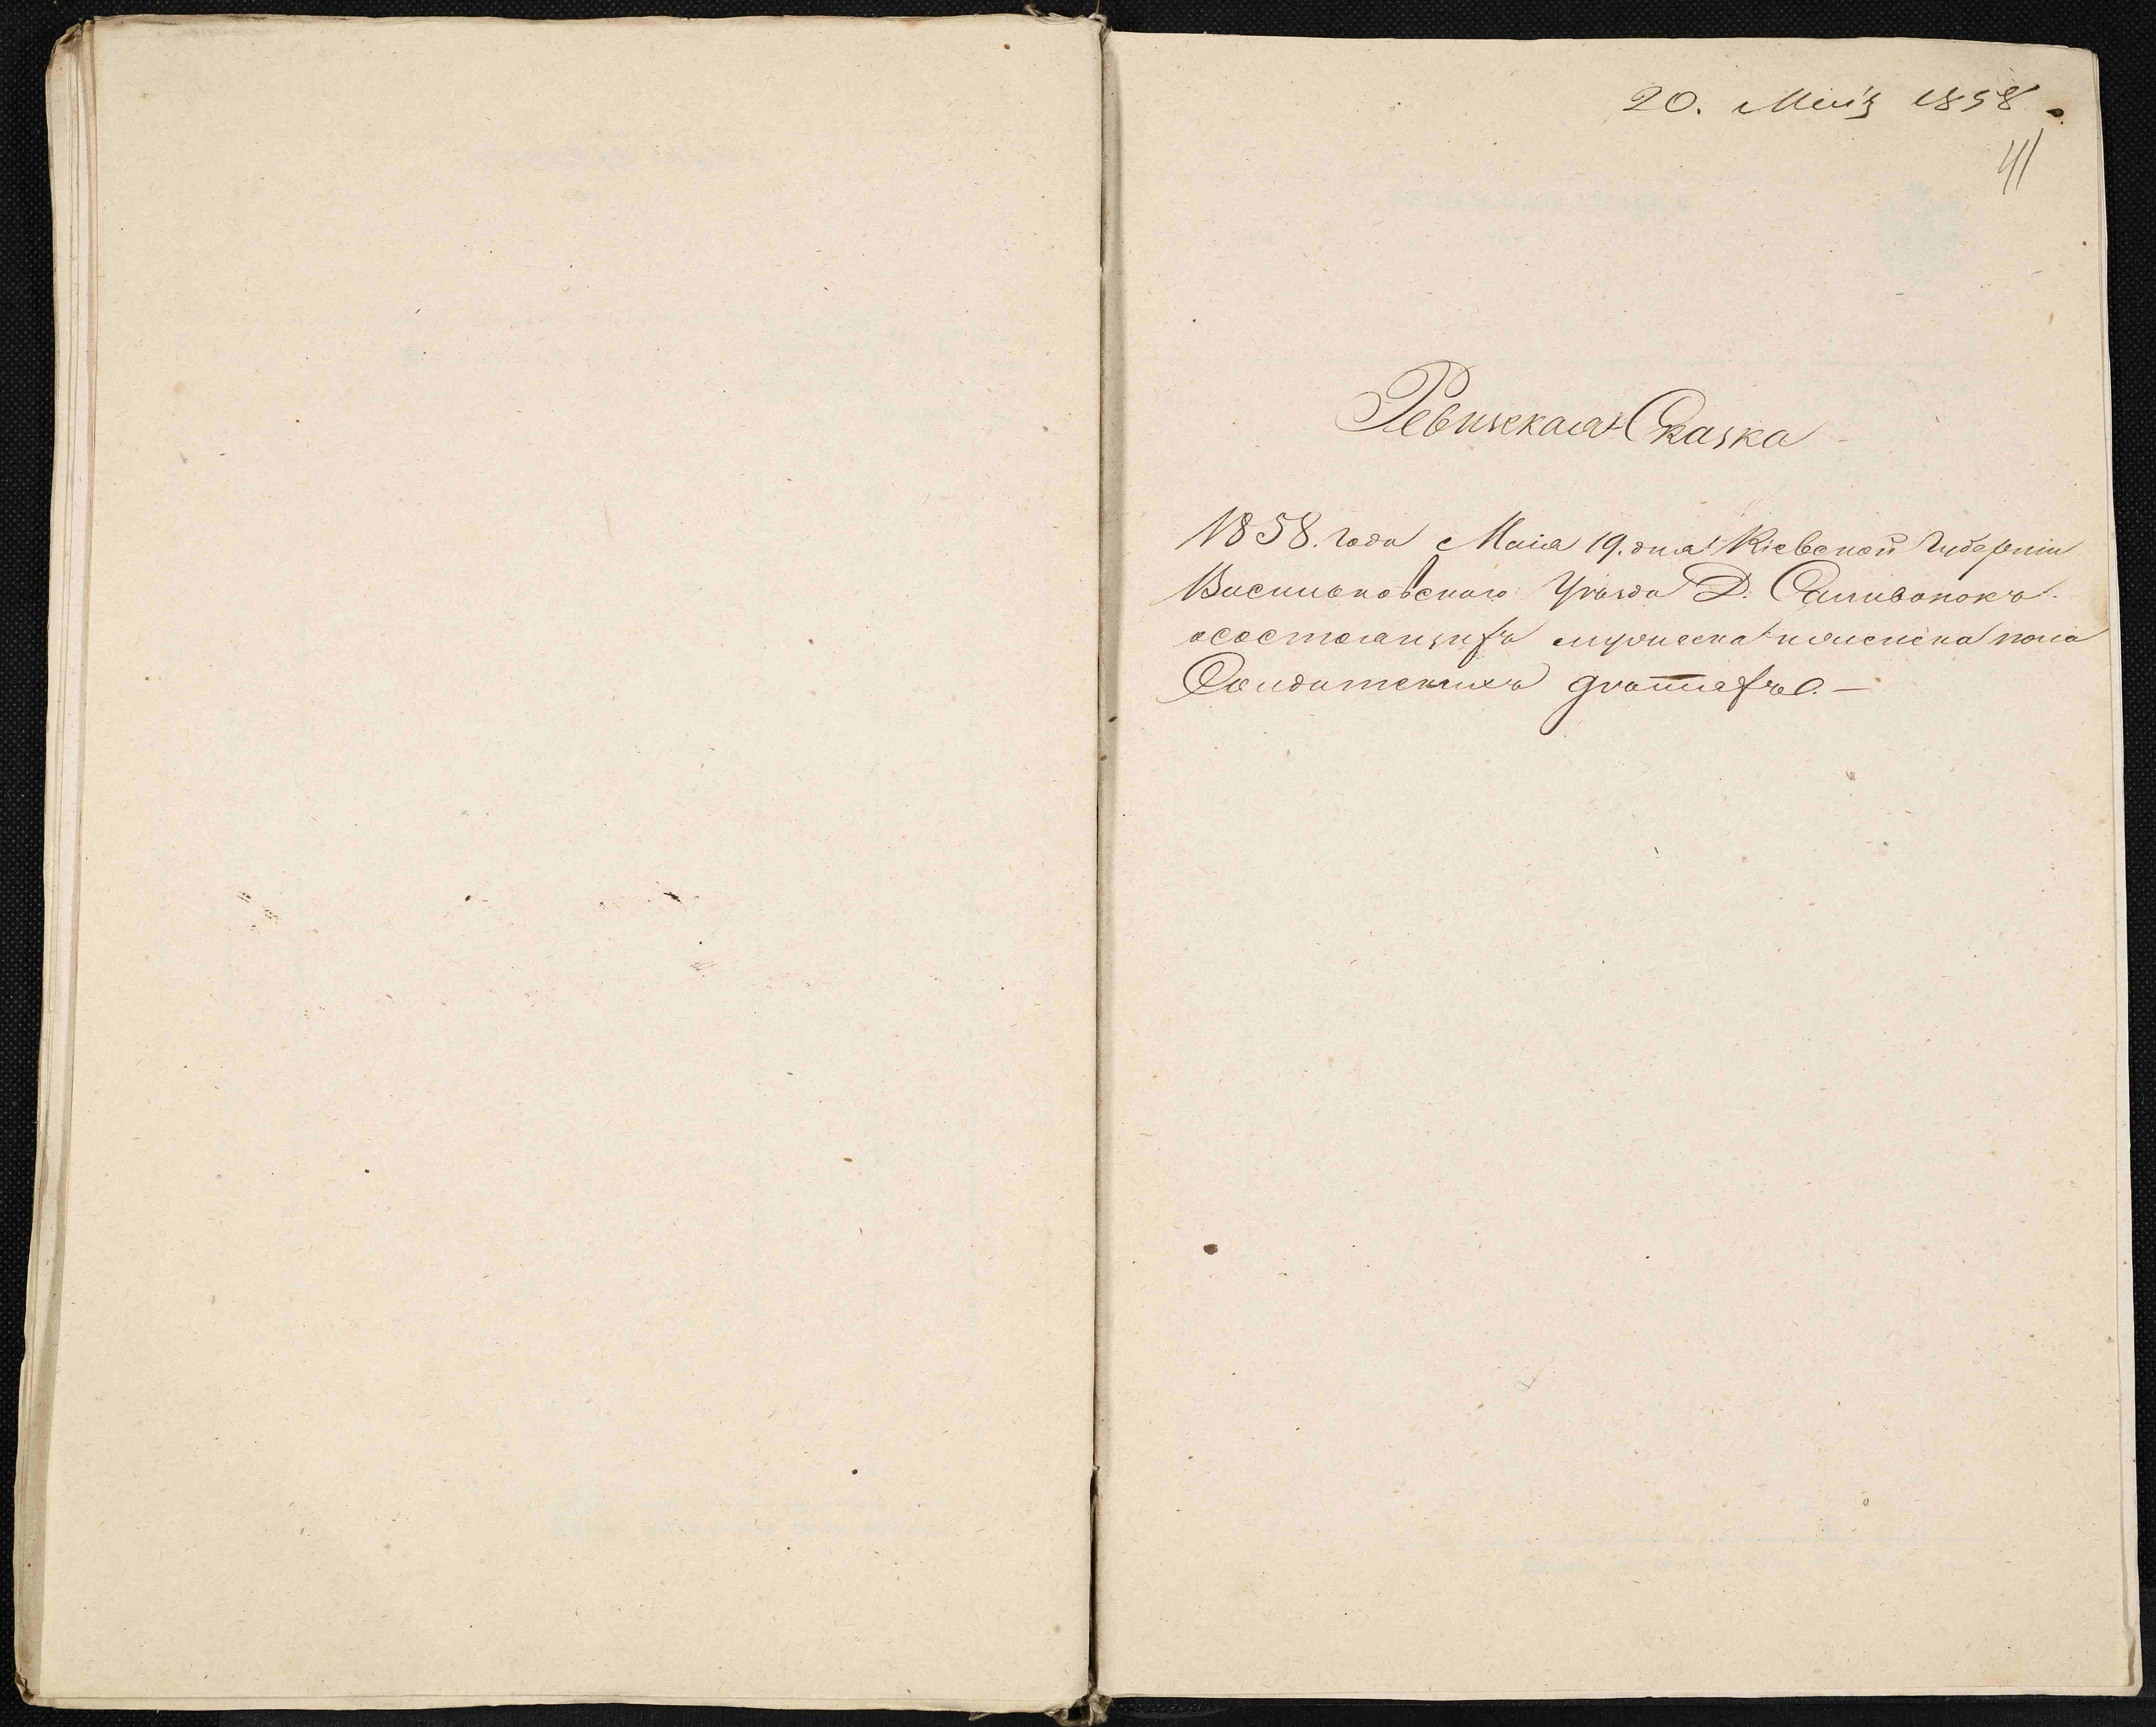 20. Мая 1858.
41
Ревизская Сказка
1858. года Маія 19. дня Кіевской Губерніи
Васильковского Уѣзда Д. Саливонокъ
осостоящихъ мужеска и женска пола
Солдатскихъ